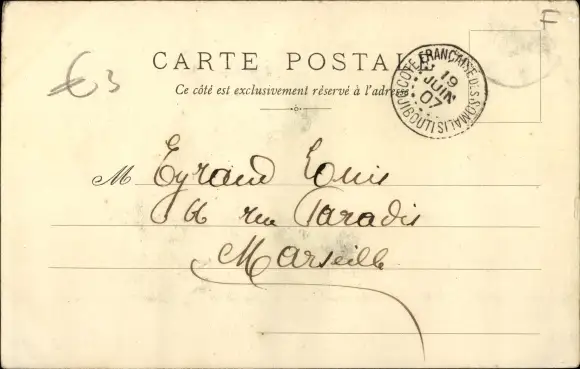 €3
F
CARTE POSTALE
Ce côté est exclusivement réservé à l'adresse
CÔTE FRANÇAISE DES SOMALIS
19
JUIN
07
DJIBOUTI
M Eyraud Louis
66 rue Paradis
Marseille